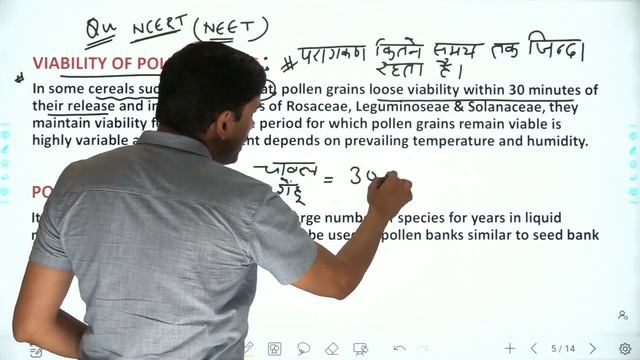 Qu NCERT (NEET)
VIABILITY OF POL
# परागकण कितने समय तक जिन्दा
रहता है।
In some cereals suc pollen grains loose viability within 30 minutes of
their release and in s of Rosaceae, Leguminoseae & Solanaceae, they
maintain viability f e period for which pollen grains remain viable is
highly variable a ent depends on prevailing temperature and humidity.
चावल
गेंहू = 30
PO
It arge number f species for years in liquid
be use pollen banks similar to seed bank
5 / 14